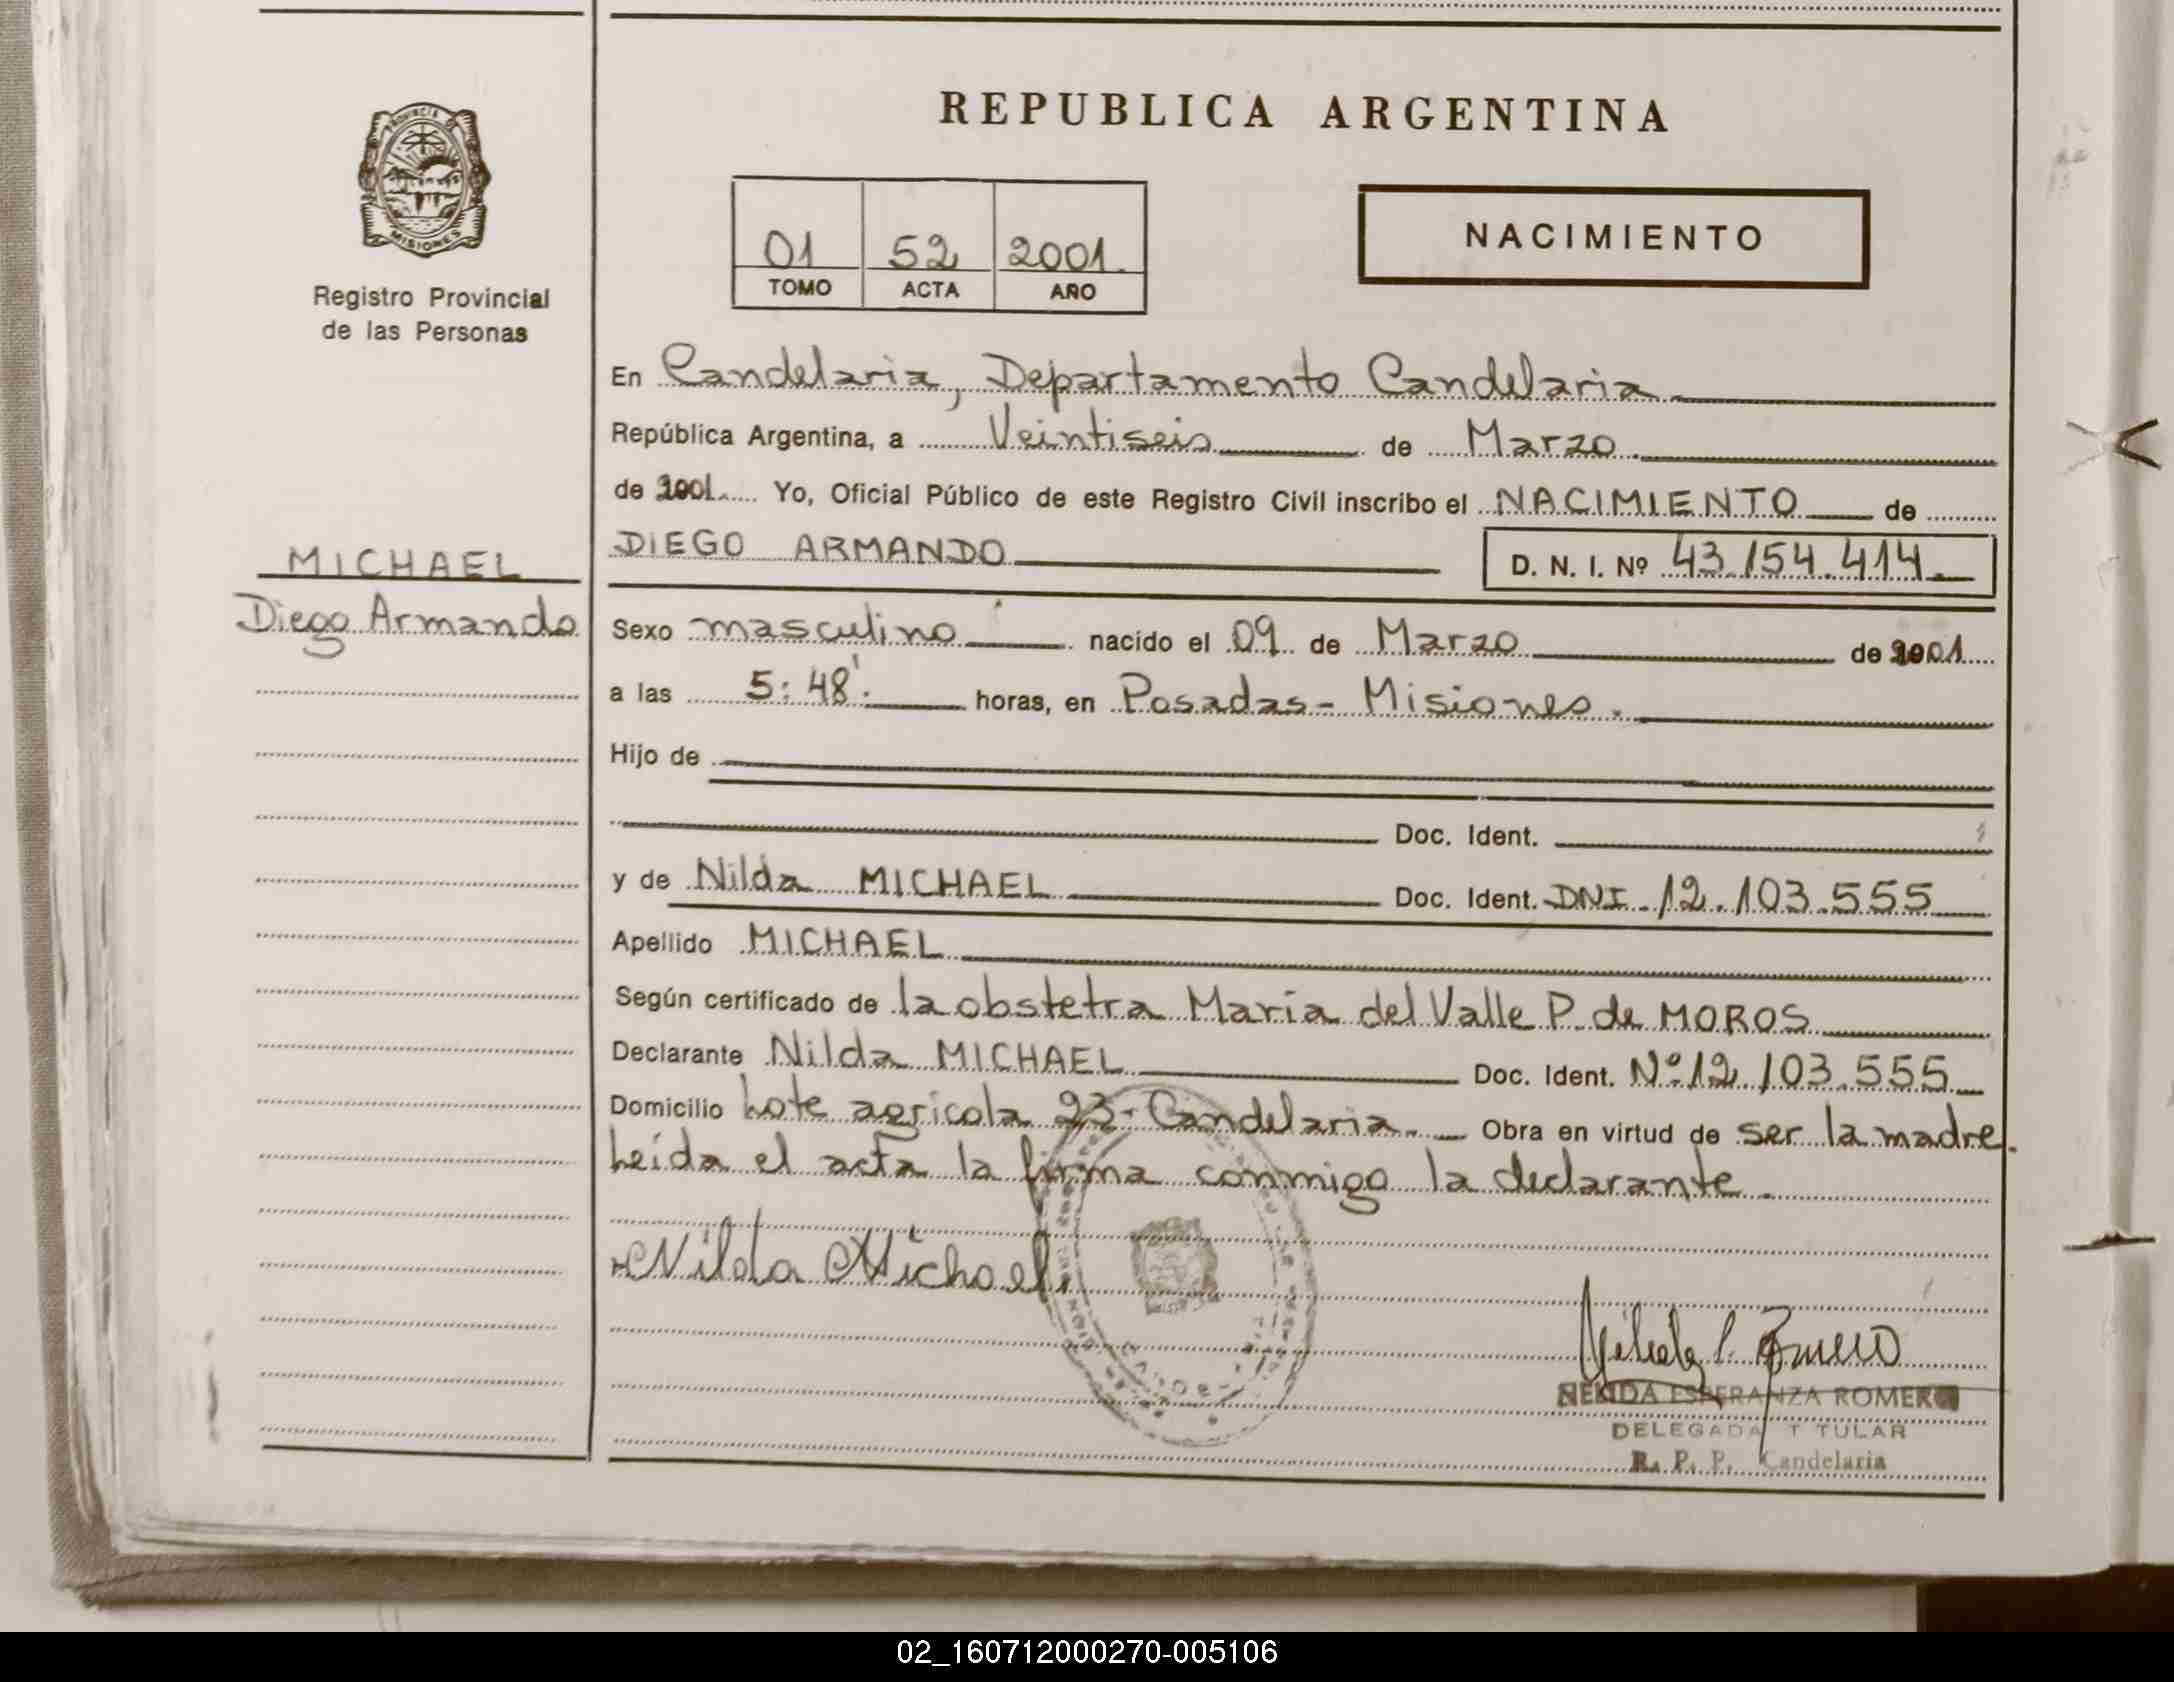 REPUBLICA ARGENTINA
PROVINCIA DE
MISIONES
Registro Provincial
de las Personas
01 52 2001.
TOMO ACTA AÑO
NACIMIENTO
En Candelaria, Departamento Candelaria
República Argentina, a Veintiseis de Marzo.
de 2001. Yo, Oficial Público de este Registro Civil inscribo el NACIMIENTO de
MICHAEL
Diego Armando
DIEGO ARMANDO D. N. I. Nº 43.154.414.
Sexo masculino nacido el 09 de Marzo de 2001
a las 5:48'. horas, en Posadas - Misiones.
Hijo de
Doc. Ident.
y de Nilda MICHAEL Doc. Ident. DNI. 12.103.555
Apellido MICHAEL
Según certificado de la obstetra María del Valle P. de MOROS
Declarante Nilda MICHAEL Doc. Ident. Nº 12.103.555
Domicilio Lote agricola 23 - Candelaria. Obra en virtud de ser la madre.
Leída el acta la firma conmigo la declarante.
Nilda Michael
NELIDA ESPERANZA ROMERO
DELEGADA T TULAR
R. P. P. Candelaria
02_160712000270-005106